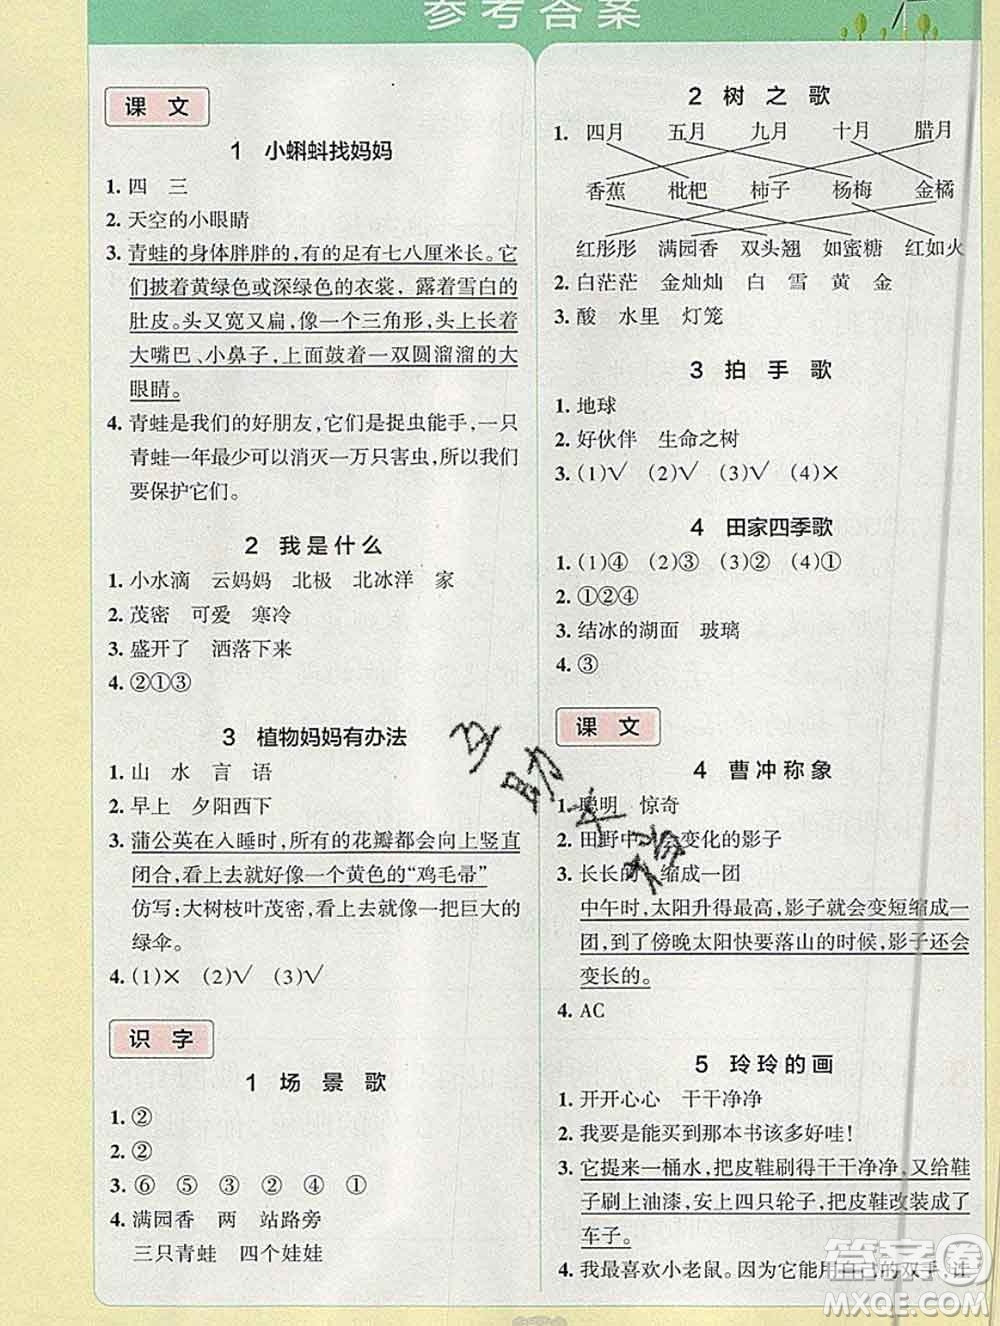 参考答案
课文
1 小蝌蚪找妈妈
1. 四 三
2. 天空的小眼睛
3. 青蛙的身体胖胖的,有的足有七八厘米长。它
们披着黄绿色或深绿色的衣裳,露着雪白的
肚皮。头又宽又扁,像一个三角形,头上长着
大嘴巴、小鼻子,上面鼓着一双圆溜溜的大
眼睛。
4. 青蛙是我们的好朋友,它们是捉虫能手,一只
青蛙一年最少可以消灭一万只害虫,所以我们
要保护它们。
2 我是什么
1. 小水滴 云妈妈 北极 北冰洋 家
2. 茂密 可爱 寒冷
3. 盛开了 洒落下来
4. ②①③
3 植物妈妈有办法
1. 山 水 言 语
2. 早上 夕阳西下
3. 蒲公英在入睡时,所有的花瓣都会向上竖直
闭合,看上去就好像一个黄色的“鸡毛帚”
仿写:大树枝叶茂密,看上去就像一把巨大的
绿伞。
4. (1)× (2)√ (3)√
识字
1 场景歌
1. ②
2. ②
3. ⑥ ⑤ ③ ② ④ ①
4. 满园香 两 站路旁
三只青蛙 四个娃娃
2 树之歌
1. 四月 五月 九月 十月 腊月
香蕉 枇杷 柿子 杨梅 金橘
红彤彤 满园香 双头翘 如蜜糖 红如火
2. 白茫茫 金灿灿 白 雪 黄 金
3. 酸 水里 灯笼
3 拍手歌
1. 地球
2. 好伙伴 生命之树
3. (1)√ (2)√ (3)√ (4)×
4 田家四季歌
1. (1)④ (2)③ (3)② (4)①
2. ①②④
3. 结冰的湖面 玻璃
4. ③
课文
4 曹冲称象
1. 聪明 惊奇
2. 田野中 会变化的影子
3. 长长的 缩成一团
中午时,太阳升得最高,影子就会变短缩成一
团,到了傍晚太阳快要落山的时候,影子还会
变长的。
4. AC
5 玲玲的画
1. 开开心心 干干净净
2. 我要是能买到那本书该多好哇!
3. 它提来一桶水,把皮鞋刷得干干净净,又给鞋
子刷上油漆,安上四只轮子,把皮鞋改装成了
车子。
4. 我最喜欢小老鼠。因为它能用自己的双手,让
互助文档
答案圈
MXQE.COM